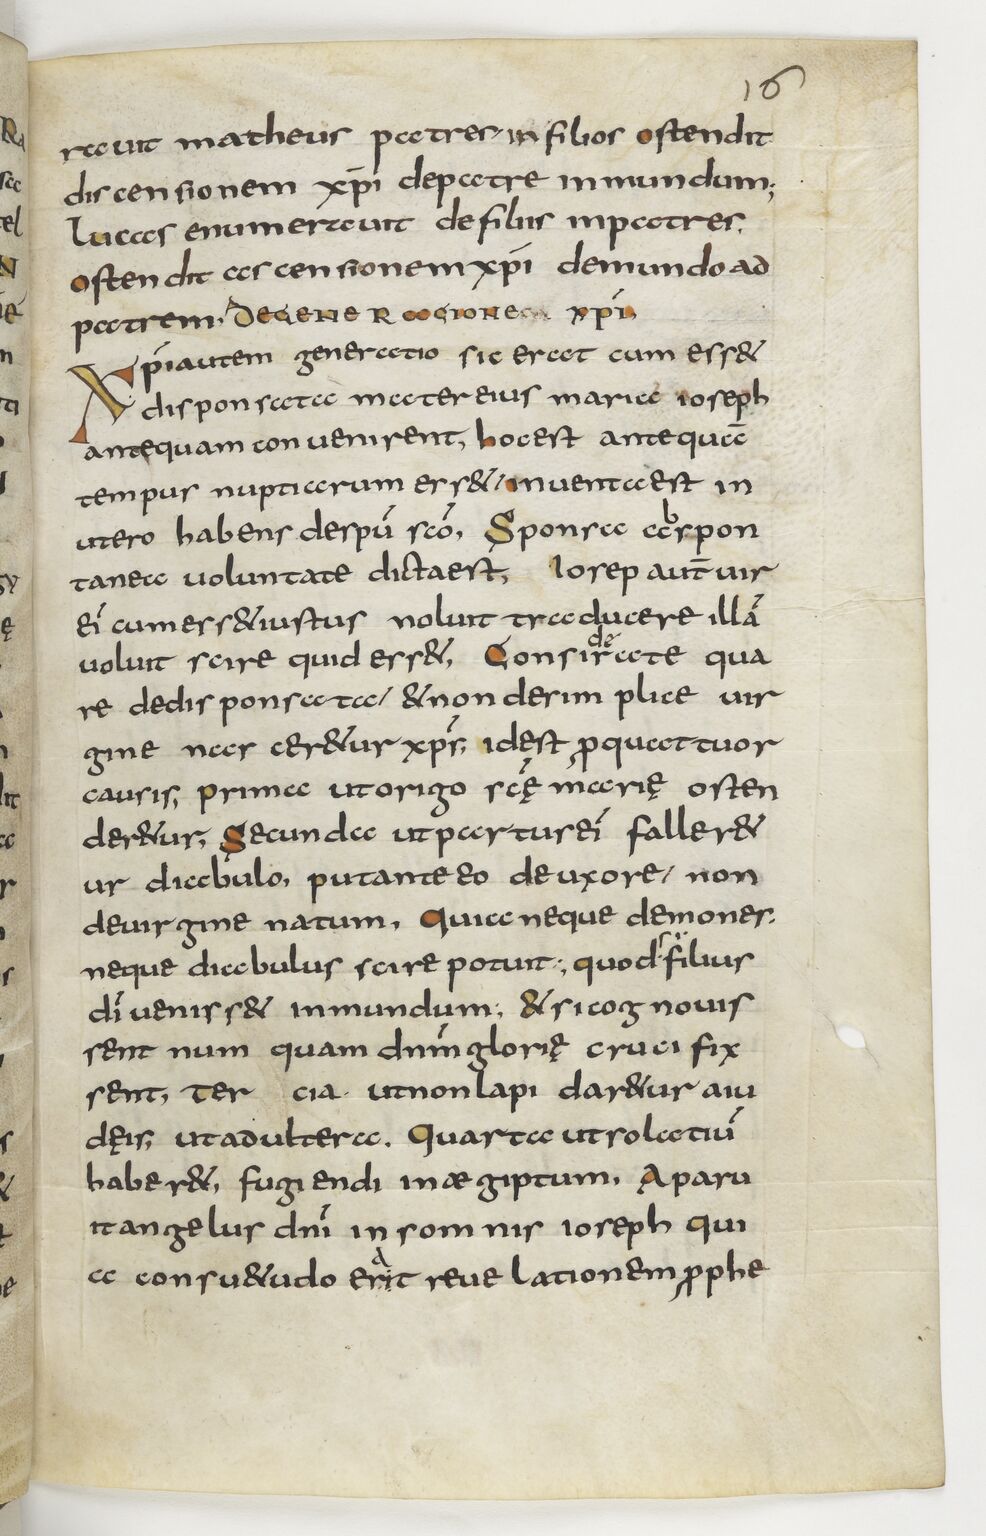 16
rauit matheus patres in filios ostendit
discensionem xp̄i depatre inmundum;
lucas enumerauit defiliis inpatres.
ostendit ascensionem xp̄i demundo ad
patrem. DeGENERaCIONEm xp̄i,
Xp̄i autem generatio sic erat cum ess&
disponsata mater eius maria ioseph
antequam conuenirent, hoc est antequā
tempus nuptiarum ess& inuenta est in
utero habens despū scō, Sponsa abspon
tanea uoluntate dicta est, Iosep aut̄ uir
ei cumess& iustus noluit traducere illā
uoluit scire quid ess&, Considerate qua
re dedisponsata, & non desimplice uir
gine nasceretur xp̄s, idest ꝓquattuor
causis, prima ut origo scę marię osten
der&ur, Secunda ut partus ei faller&
ur diabulo, putante eo deuxore, non
deuirgine natum, Quia neque demones
neque diabulus scire potuit, quod filius
dī uenisse& inmundum, & si cognouis
sent numquam dn̄m glorię crucifix
sent, Tercia ut non lapidar&ur a iu
dęis, ut adultera. Quarta ut solatiū
haber&, fugiendi in ægiptum, Aparu
it angelus dn̄i insomnis ioseph qui
a consu&udo erat reuelationem ꝓphe